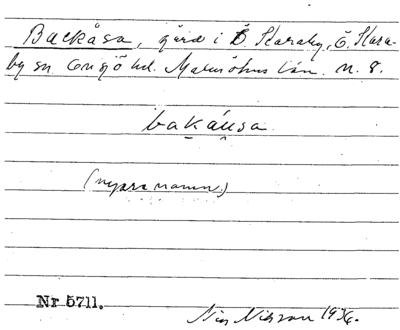 Backåsa, gård i Ö. Karaby, Ö. Kara-
by sn Onsjö hd. Malmöhus län. n. 8.
bakáusa
(nyare namn.)
Nr 5711.
Nils Nilsson 1936.